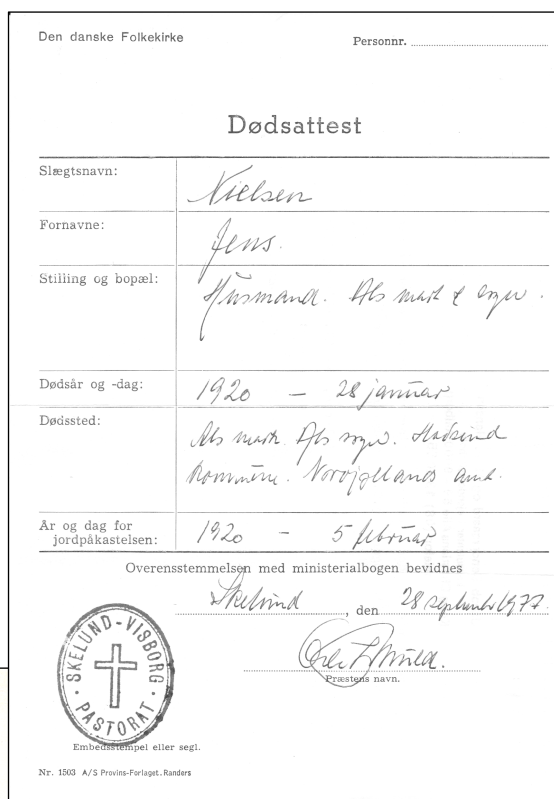 Den danske Folkekirke
Personnr.
Dødsattest
Slægtsnavn: Nielsen
Fornavne: Jens.
Stilling og bopæl: Husmand. Als mark & sogn.
Dødsår og -dag: 1920 — 28 januar
Dødssted: Als mark. Als sogn. Hadsund
kommune. Nordjyllands amt.
År og dag for
jordpåkastelsen: 1920 - 5 februar
Overensstemmelsen med ministerialbogen bevidnes
Skelund, den 28 september 1977.
Præstens navn.
SKELUND-VISBORG
PASTORAT
Embedsstempel eller segl.
Nr. 1503 A/S Provins-Forlaget. Randers